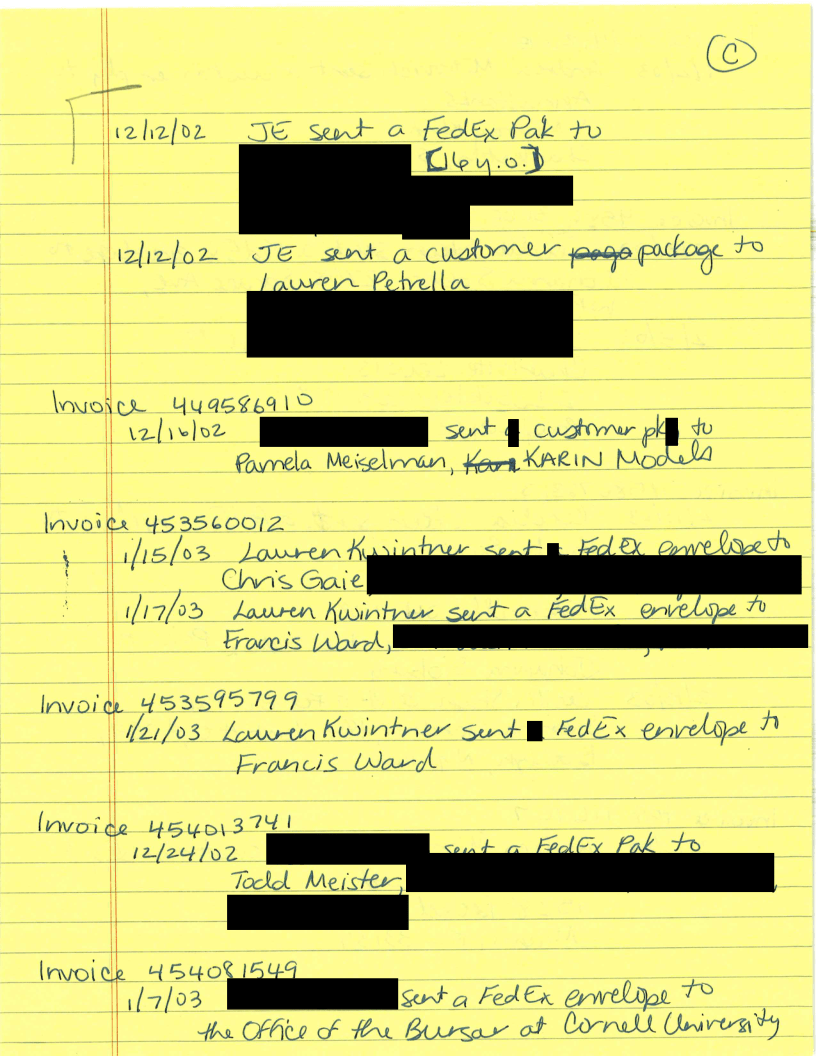 C
12/12/02 JE sent a FedEx Pak to
[16 y.o.]
12/12/02 JE sent a customer package to
Lauren Petrella
Invoice 449586910
12/16/02 sent customer pk to
Pamela Meiselman, KARIN Models
Invoice 453560012
1/15/03 Lauren Kwintner sent FedEx envelope to
Chris Gaie
1/17/03 Lauren Kwintner sent a FedEx envelope to
Francis Ward,
Invoice 453595799
1/21/03 Lauren Kwintner sent FedEx envelope to
Francis Ward
Invoice 454013741
12/24/02 sent a FedEx Pak to
Todd Meister,
Invoice 454081549
1/7/03 sent a FedEx envelope to
the Office of the Bursar at Cornell University